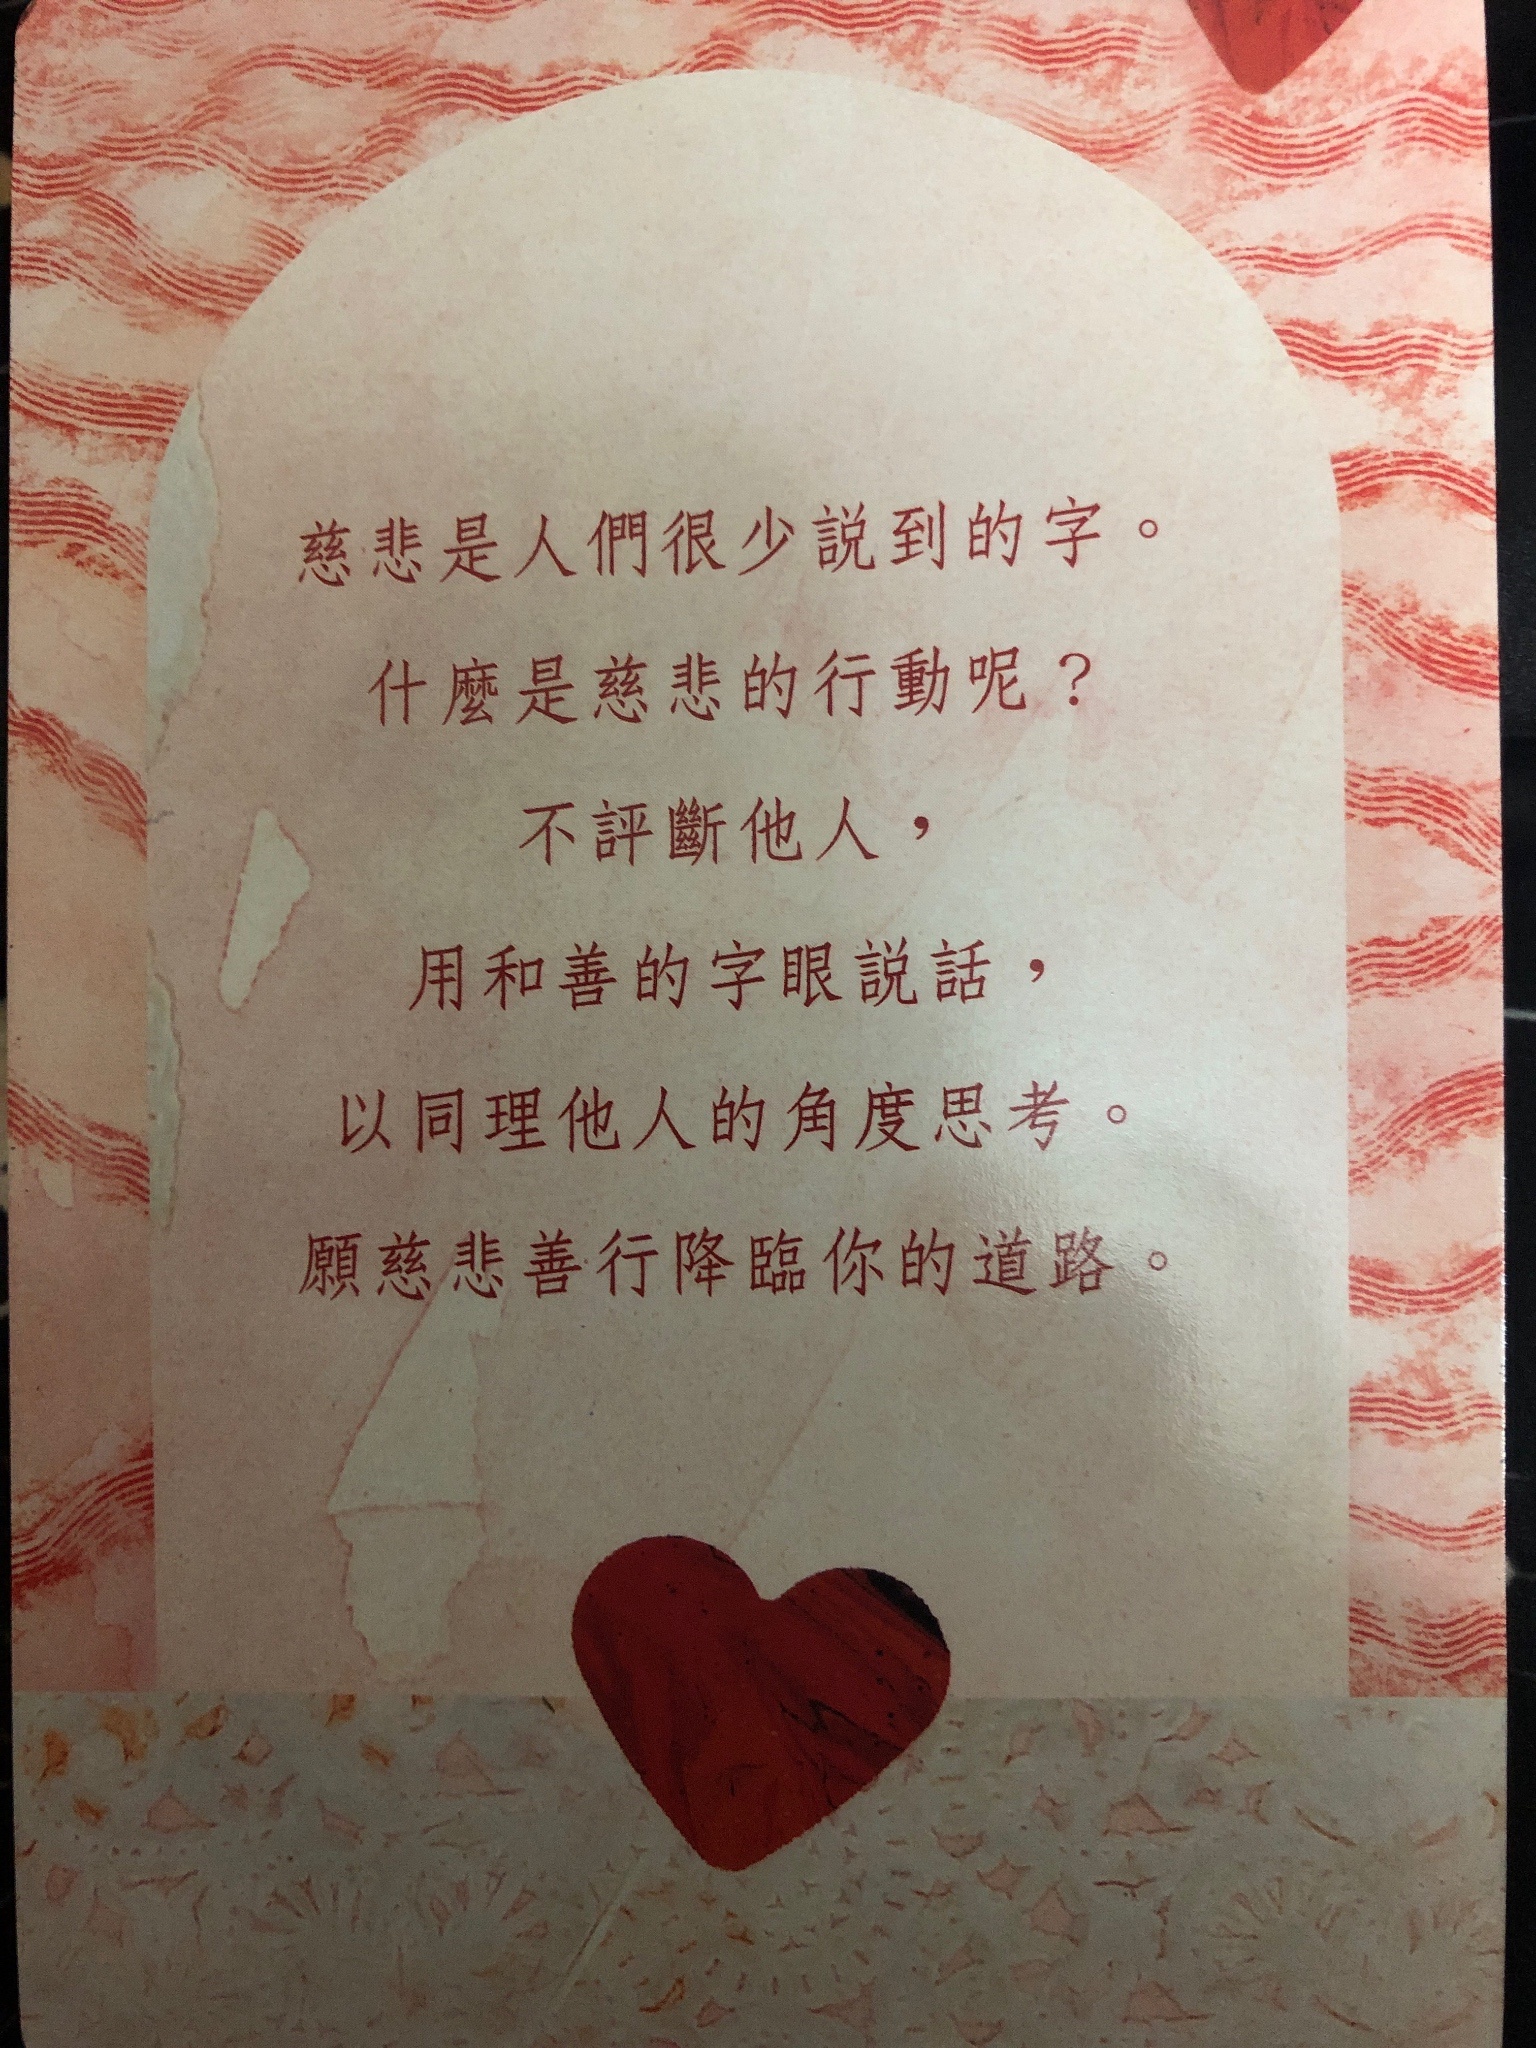 慈悲是人們很少說到的字。
什麼是慈悲的行動呢？
不評斷他人，
用和善的字眼說話，
以同理他人的角度思考。
願慈悲善行降臨你的道路。